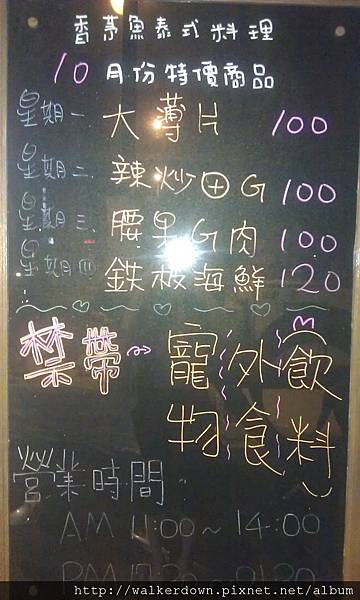 香茅魚泰式料理
10月份特價商品
星期一 大薄片 100
星期二 辣炒田G 100
星期三 腰果G肉 100
星期四 鉄板海鮮 120
禁帶 寵物 外食 飲料
營業時間
AM 11:00~14:00
PM 17:30
http://walkerdown.pixnet.net/album